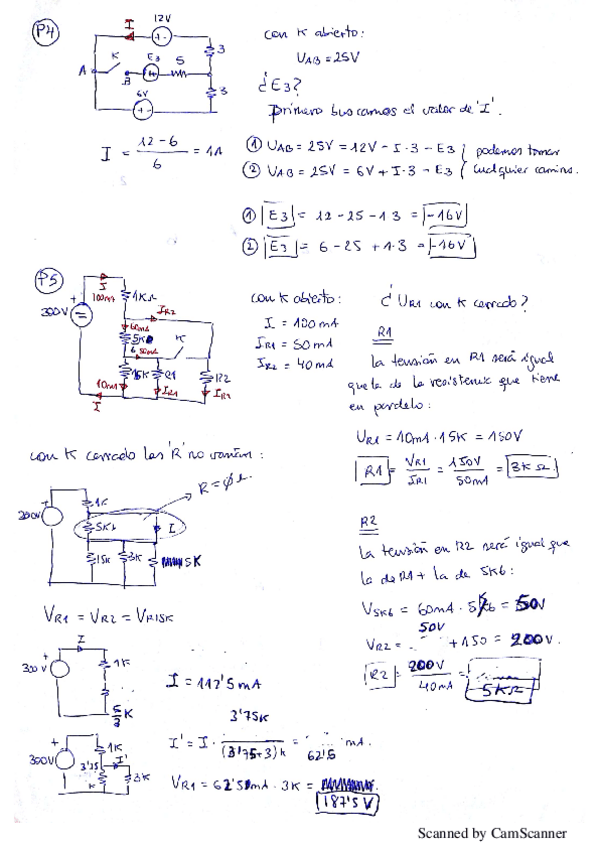 P4
I
12V
+ -
3
K
E3
5
A
B
6V
3
con K abierto:
UAB = 25V
¿E3?
primero buscamos el valor de 'I'.
I = 12-6 / 6 = 1A
① UAB = 25V = 12V - I·3 - E3 } podemos tomar
② UAB = 25V = 6V + I·3 - E3 } cualquier camino.
① |E3| = 12 - 25 - 1·3 = |-16V|
② |E3| = 6 - 25 + 1·3 = |-16V|
P5
+
300V
I
100mA
1KΩ
IR2
60mA
K
50mA
15K
R1
R2
10mA
IR1
IR2
I
con K abierto:
I = 100mA
IR1 = 50mA
IR2 = 40mA
¿UR1 con K cerrado?
R1
La tensión en R1 será igual
que la de la resistencia que tiene
en paralelo:
VR1 = 10mA·15K = 150V
R1 = VR1 / IR1 = 150V / 50mA = 3KΩ
con K cerrado las 'R' no varían:
R = ∅
+
1K
5K6
I
15K
3K
5K
VR1 = VR2 = VR15K
R2
La tensión en R2 será igual que
la de R1 + la de 5K6:
V5K6 = 60mA · = 50V
50V
VR2 = + 150 = 200V.
R2 = 200V / 40mA =
5KΩ
I
+
300V
1K
5/3 K
I = 112'5mA
+
300V
1K
3'75
K
I'
3K
3'75K
I' = I · / (3'75+3)K = mA.
62'5
VR1 = 62'5mA · 3K =
187'5V
Scanned by CamScanner